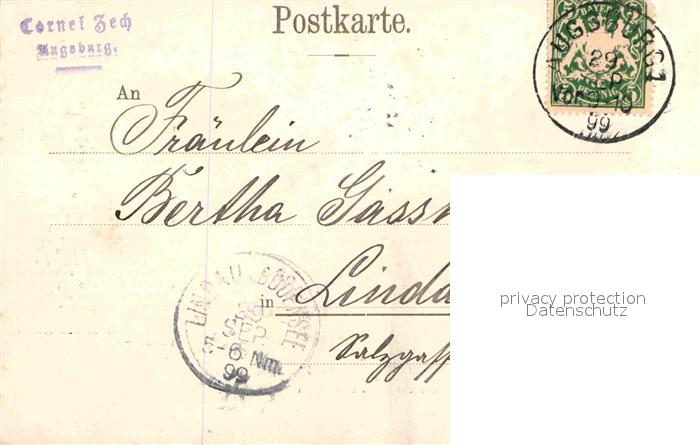 Cornel Zech
Augsburg.
Postkarte.
AUGSBURG 1
29
SEP
99
An
Fräulein
Bertha Gass
LINDAU BODENSEE
SEP
6 Nm
99
in Linda
Salzgass
privacy protection
Datenschutz